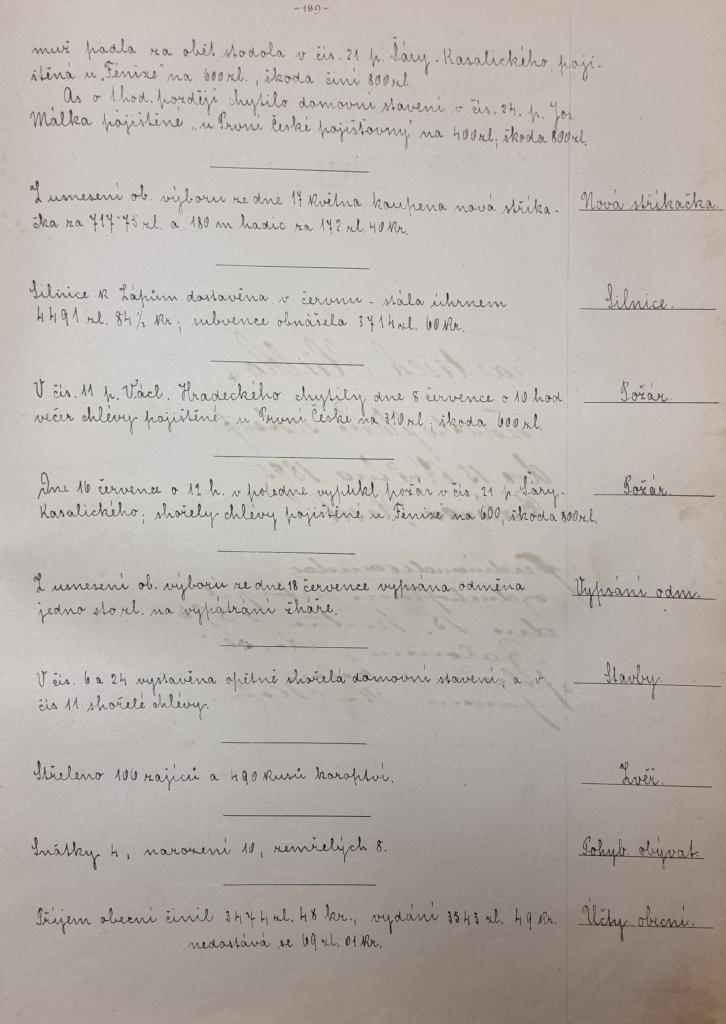 -189-
muž padla za oběť stodola v čís. 21 p. Šáry-Kasalického, poji-
štěná u „Fénixe" na 600 zl., škoda činí 800 zl.
As o 1 hod. později chytilo domovní stavení v čís. 24. p. Jos.
Málka pojištěné „u První České pojišťovny" na 400 zl; škoda 800 zl.
Z usnesení ob. výboru ze dne 17 května koupena nová stříka-
čka za 717·75 zl. a 180 m hadic za 172 zl. 40 kr.
Nová stříkačka.
Silnice k Zápům dostavěna v červnu - stála úhrnem
4491 zl. 84½ kr; subvence obnášela 3714 zl. 60 kr.
Silnice.
V čís. 11 p. Václ. Hradeckého chytily dne 8 července o 10 hod.
večer chlévy pojištěné „u První České na 310 zl; škoda 600 zl.
Požár.
Dne 16 července o 12 h. v poledne vypukl požár v čís. 21 p. Šáry-
Kasalického; shořely chlévy pojištěné u „Fénixe" na 600, škoda 800 zl.
Požár.
Z usnesení ob. výboru ze dne 18 července vypsána odměna
jedno sto zl. na vypátrání žháře.
Vypsání odm.
V čís. 6 a 24 vystavěna opětně shořelá domovní stavení, a v
čís 11 shořelé chlévy.
Stavby.
Střeleno 106 zajíců a 490 kusů koroptví.
Zvěř.
Sňatky 4, narození 10, zemřelých 8.
Pohyb. obývat.
Příjem obecní činil 3474 zl. 48 kr., vydání 3543 zl. 49 kr.
nedostává se 69 zl. 01 kr.
Účty obecní.